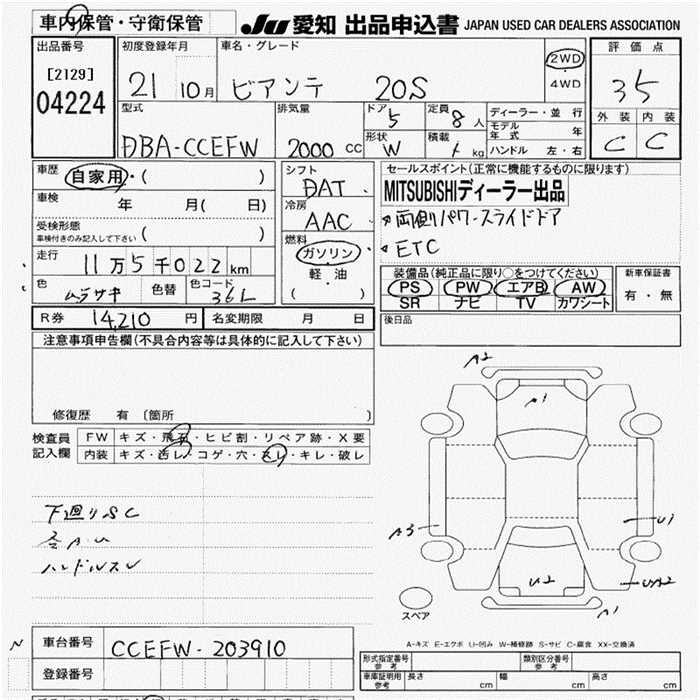 車内保管・守衛保管
JU 愛知 出品申込書 JAPAN USED CAR DEALERS ASSOCIATION
出品番号
[2129]
04224
初度登録年月
21 10月
車名・グレード
ビアンテ 20S
2WD
4WD
評価点
35
外装 内装
C C
型式
DBA-CCEFW
排気量
2000 CC
ドア
5
定員
8人
形状
W
積載
kg
ディーラー・並行
モデル年式 年
ハンドル 左・右
車歴
自家用・( )
車検
年 月( 日)
受検形態
車検付きのみ記入して下さい ( )
走行
11万5千022km
色
ムラサキ
色替
色コード
36L
シフト
DAT
冷房
AAC
燃料
ガソリン・
軽・油
( )
セールスポイント(正常に機能するものに限ります)
MITSUBISHIディーラー出品
両側パワースライドドア
ETC
装備品(純正品に限り○をつけてください)
PS PW エアB AW
SR ナビ TV カワシート
新車保証書
有・無
R券 14,210 円 名変期限 月 日
後日品
注意事項申告欄(不具合内容等は具体的に記入して下さい)
修復歴 有 〔箇所 〕
検査員記入欄
FW キズ・飛石・ヒビ割・リペア跡・X要
内装 キズ・汚レ・コゲ・穴・スレ・キレ・破レ
下廻りSC
各A・U
ハンドルスレ
A2
A1
A3
U1
U2
UA2
A1
スペア
A-キズ E-エクボ U-凹み W-補修跡 S-サビ C-腐食 XX-交換済
N
車台番号 CCEFW-203910
登録番号
形式指定番号 参考
類別区分番号 参考
車庫証明用 参考 長さ cm 幅 cm 高さ cm